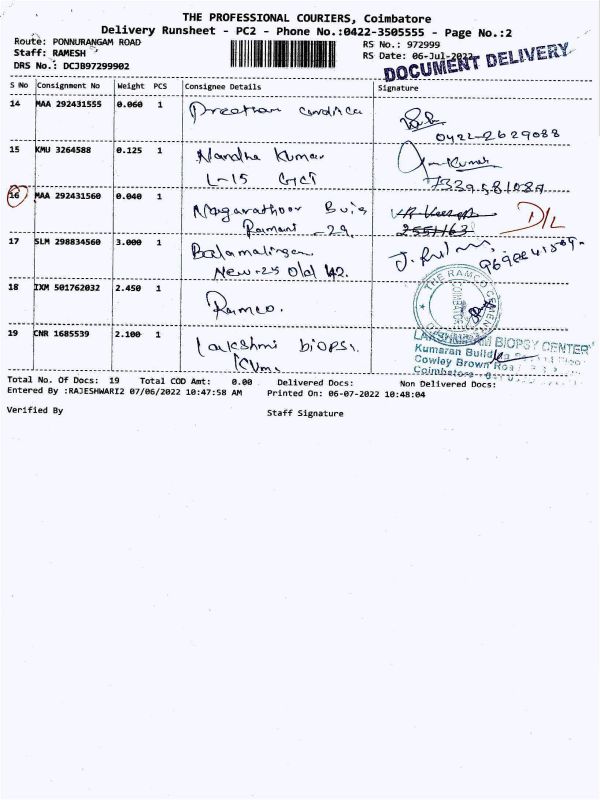 THE PROFESSIONAL COURIERS, Coimbatore
Delivery Runsheet - PC2 - Phone No.:0422-3505555 - Page No.:2
Route: PONNURANGAM ROAD
RS No.: 972999
Staff: RAMESH
RS Date: 06-Jul-2022
DRS No.: DCJB97299902
DOCUMENT DELIVERY
S No Consignment No Weight PCS Consignee Details Signature
14 MAA 292431555 0.060 1
0422-2629088
15 KMU 3264588 0.125 1 Nandha Kumar
L-15 GCT
16 MAA 292431560 0.040 1
Ramani - 29
D/L
17 SLM 298834560 3.000 1 Balamalingam
New-25 Old 42.
18 IXM 501762032 2.450 1 Ramco.
THE RAMCO CEMENTS
COIMBATORE
19 CNR 1685539 2.100 1 Lakshmi biopsi.
BIOPSY CENTER
Kumaran Building
Cowley Brown Road
Coimbatore
Total No. Of Docs: 19 Total COD Amt: 0.00 Delivered Docs: Non Delivered Docs:
Entered By :RAJESHWARI2 07/06/2022 10:47:58 AM Printed On: 06-07-2022 10:48:04
Verified By Staff Signature